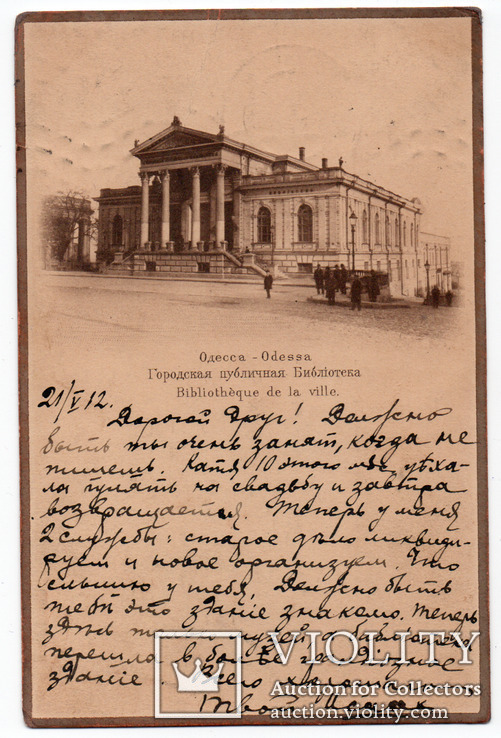 Одесса - Odessa
Городская публичная Библіотека
Bibliothèque de la ville.
21/V 12.
Дорогой Друг! Должно
быть ты очень занят, когда не
пишешь. Катя 10 этого уѣха-
ла гулять на свадьбу и завтра
возвращается. Теперь у меня
2 службы: старое дѣло ликвиди-
руем и новое организуем. Что
слышно у тебя, Должно быть
тебѣ это зданіе знакомо. Теперь
здѣсь музей, а
перешла в болѣе
зданіе. Всего
Твой
VIOLITY
Auction for Collectors
auction.violity.com